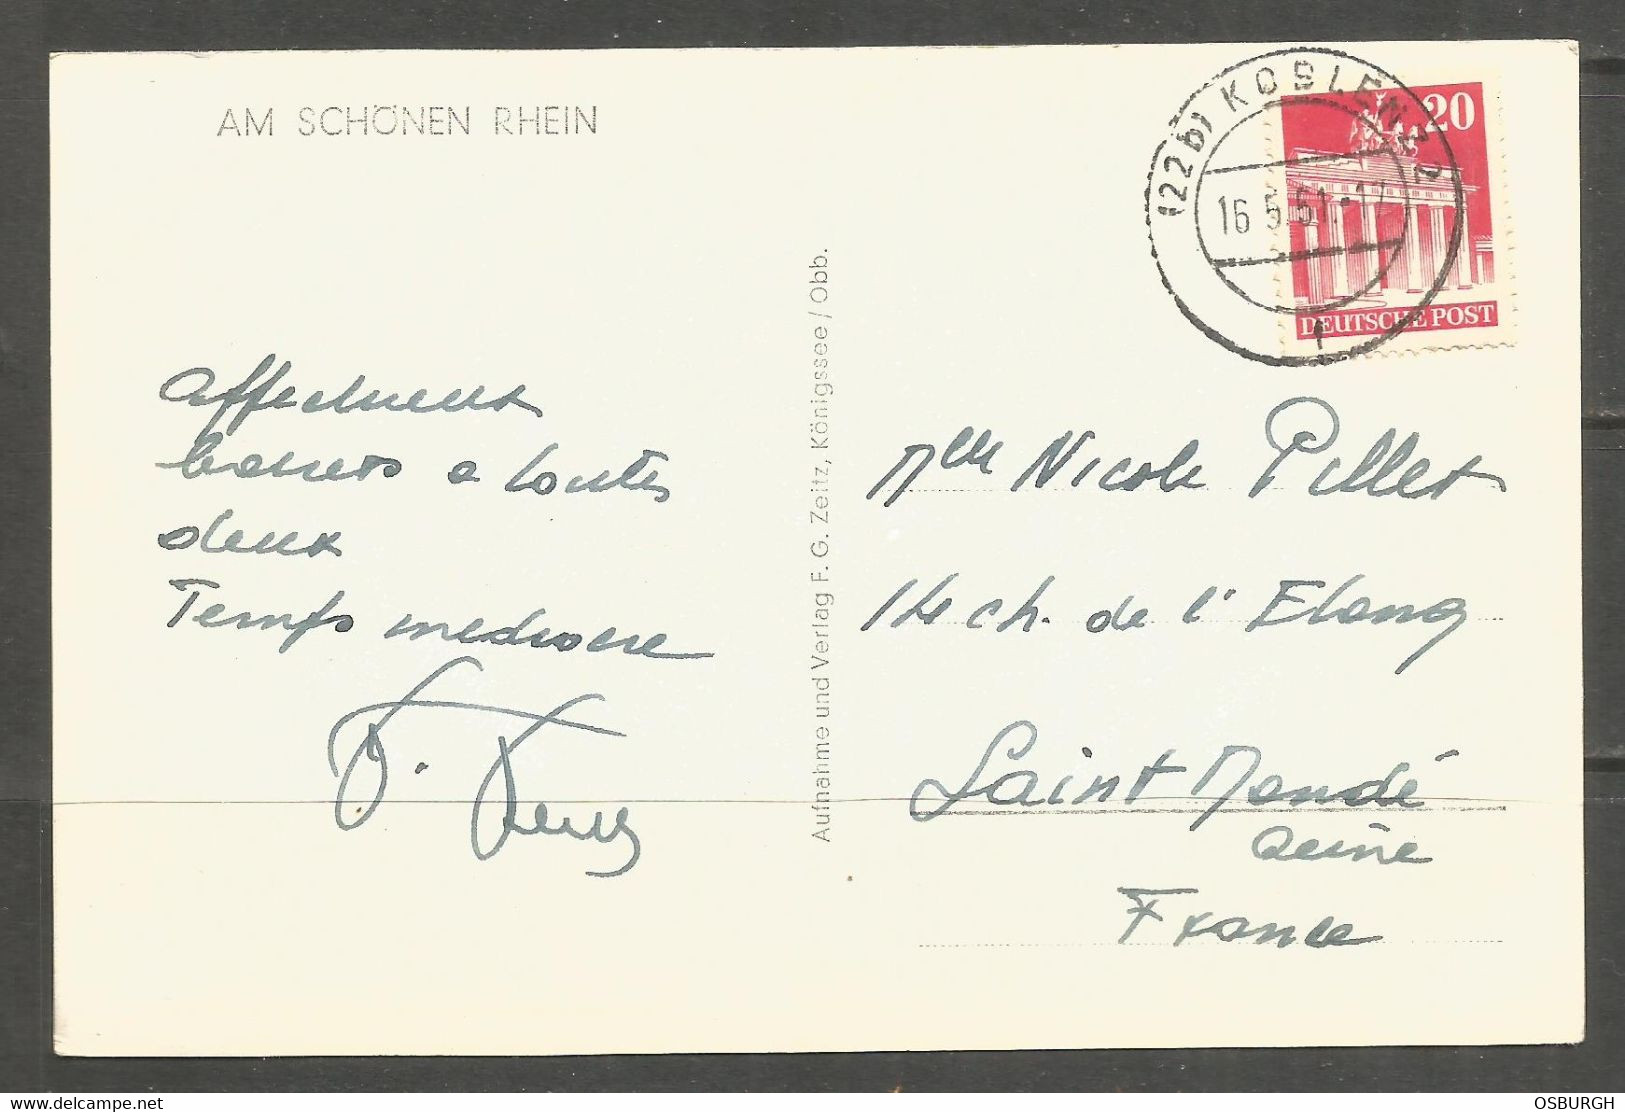 AM SCHÖNEN RHEIN
(22b) KOBLENZ 2
16.5.51.-17
f
20
DEUTSCHE POST
Affectueux
baisers a toutes
deux
Temps mediocre
Aufnahme und Verlag F. G. Zeitz, Königssee / Obb.
Mlle Nicole Pillet
14 ch. de l'Etang
Saint Mandé
Seine
France
delcampe.net
OSBURGH